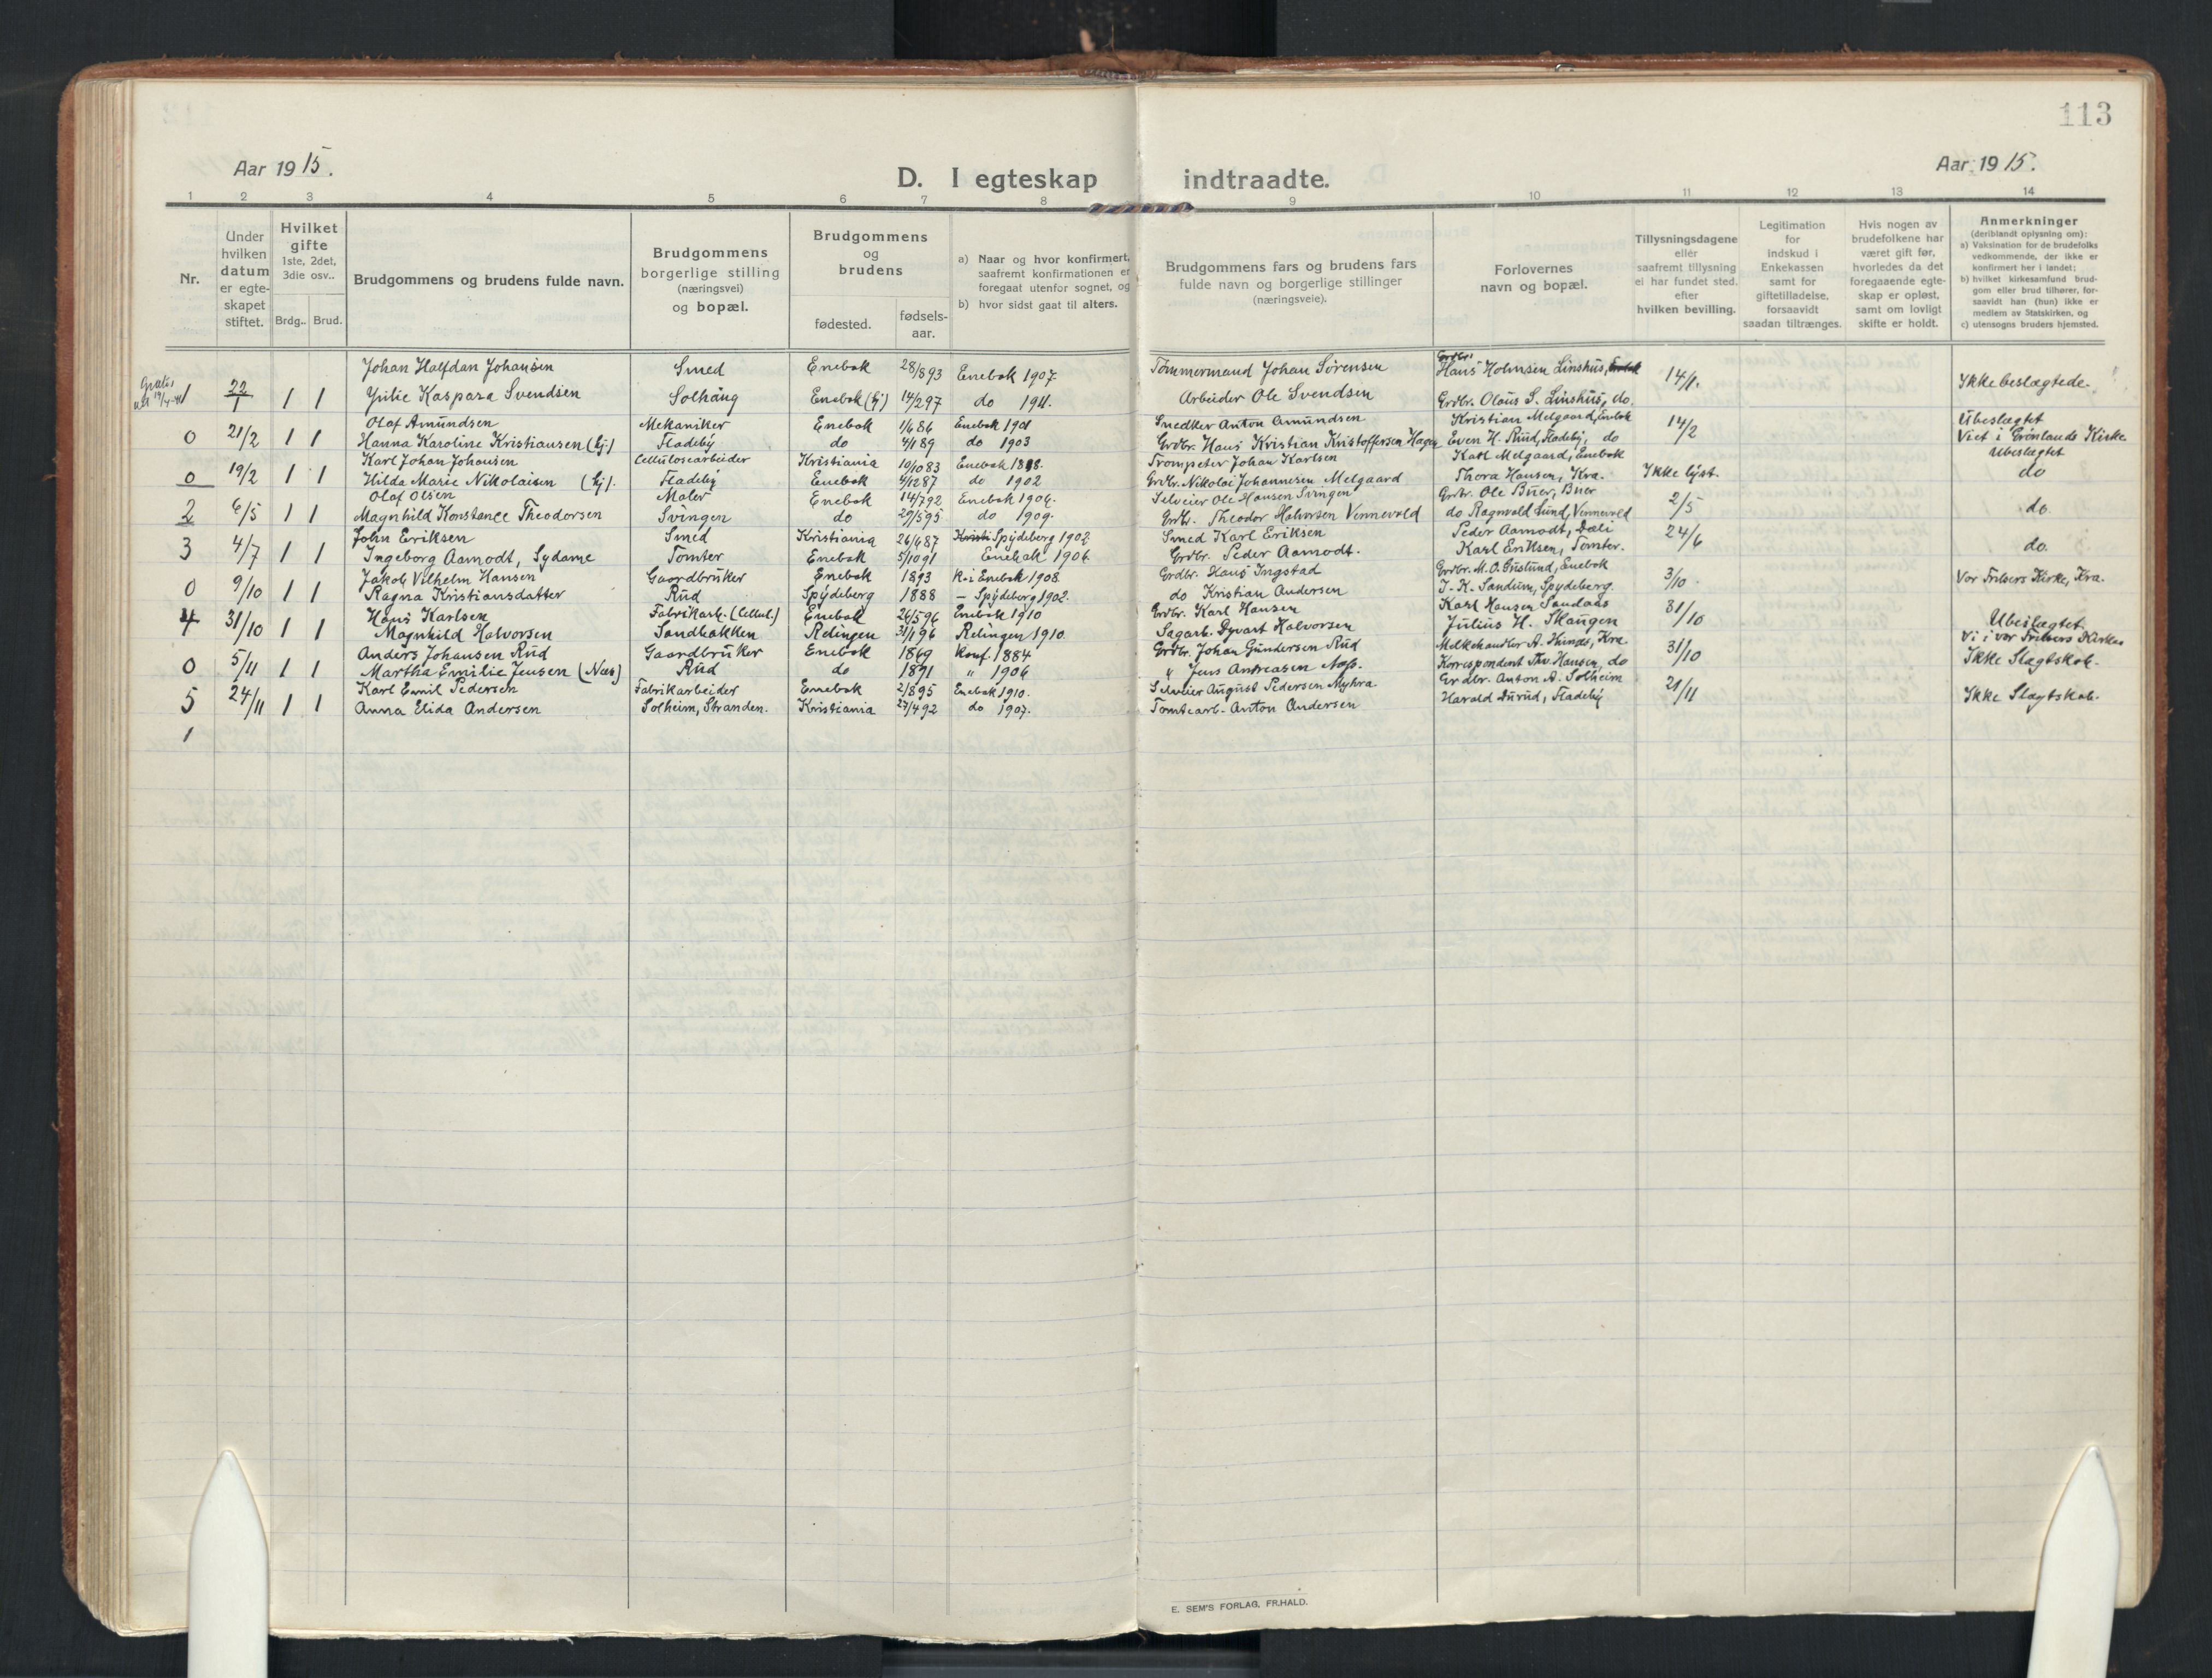 113
Aar 1915.
D. I egteskap indtraadte.
Aar 1915.
1 2 3 4 5 6 7 8 9 10 11 12 13 14
Nr.
Under hvilken datum er egte-skapet stiftet.
Hvilket gifte 1ste, 2det, 3die osv..
Brdg.. Brud.
Brudgommens og brudens fulde navn.
Brudgommens borgerlige stilling (næringsvei) og bopæl.
Brudgommens og brudens
fødested.
fødsels-aar.
a) Naar og hvor konfirmert, saafremt konfirmationen er foregaat utenfor sognet, og
b) hvor sidst gaat til alters.
Brudgommens fars og brudens fars fulde navn og borgerlige stillinger (næringsveie).
Forlovernes navn og bopæl.
Tillysningsdagene eller saafremt tillysning ei har fundet sted, efter hvilken bevilling.
Legitimation for indskud i Enkekassen samt for giftetilladelse, forsaavidt saadan tiltrænges.
Hvis nogen av brudefolkene har været gift før, hvorledes da det foregaaende egte-skap er opløst, samt om lovligt skifte er holdt.
Anmerkninger (deriblandt oplysning om):
a) Vaksination for de brudefolks vedkommende, der ikke er konfirmert her i landet;
b) hvilket kirkesamfund brud-gom eller brud tilhører, for-saavidt han (hun) ikke er medlem av Statskirken, og
c) utensogns bruders hjemsted.
Johan Halfdan Johansen Smed Enebak 28/893 Enebak 1907. Tømmermand Johan Sørensen Grdbr. Hans Holmsen Linshus, 14/1. Ikke beslægtede.
1 22/1 1 1 Julie Kaspara Svendsen Solhaug Enebak (Ej) 14/297 do 1911. Arbeider Ole Svendsen Grdbr. Olaus S. Linshus, do.
Olaf Amundsen Mekaniker Enebak 1/686 Enebak 1901 Snedker Anton Amundsen Kristian Melgaard, Enebak 14/2 Ubeslægtet
0 21/2 1 1 Hanna Karoline Kristiansen (Ej) Fladeby do 4/189 do 1903 Grdbr. Hans Kristian Kristoffersen Hagen Even H. Rud, Fladeby, do Viet i Grønlands Kirke
Karl Johan Johansen Cellulosearbeider Kristiania 10/1083 Enebak 1898. Trompeter Johan Karlsen Karl Melgaard, Enebak Ikke lyst. Ubeslægtet
0 19/2 1 1 Hilda Marie Nikolaisen (Ej). Fladeby Enebak 4/1287 do 1902 Grdbr. Nikolai Johannesen Melgaard Thora Hansen, Kra. do
Olaf Olsen Maler Enebak 14/792 Enebak 1906. Selveier Ole Hansen Svingen Grdbr. Ole Buer, Buer 2/5 do.
2 6/5 1 1 Magnhild Konstance Theodorsen Svingen do 29/595 do 1909. Grdbr. Theodor Halvorsen Vennevold do Ragnvald Lund, Vennevold
John Eriksen Smed Kristiania 26/687 Kristi Spydeberg 1902 Smed Karl Eriksen Peder Aamodt, Dæli 24/6 do.
3 4/7 1 1 Ingeborg Aamodt, Sydame Tomter Enebak 5/1091 Enebak 1906. Grdbr. Peder Aamodt. Karl Eriksen, Tomter.
Jakob Vilhelm Hansen Gaardbruker Enebak 1893 K. i Enebak 1908 Grdbr. Hans Ingstad Grdbr. M. O. Guslund, Enebak 3/10. Vor Frelsers Kirke, Kra.
0 9/10 1 1 Ragna Kristiansdatter Rud Spydeberg 1888 – Spydeberg 1902. do Kristian Andersen J. K. Sandum, Spydeberg.
Hans Karlsen Fabrikarb. (Cellul.) Enebak 26/596 Enebak 1910 Grdbr. Karl Hansen Karl Hansen Sandaas 31/10 Ubeslægtet
4 31/10 1 1 Magnhild Halvorsen Sandbakken Relingen 31/196 Relingen 1910. Sagarb. Syvart Halvorsen Julius H. Skaugen
Anders Johansen Rud Gaardbruker Enebak 1869 Konf. 1884 Grdbr. Johan Gundersen Rud Melkehandler A. Hundes, Kra. 31/10 Vi i vor Frelsers Kirke
0 5/11 1 1 Martha Emilie Jensen (Næs) Rud do 1891 " 1906 " Jens Andreasen Næs. Korrespondent Thv. Hansen, do Ikke Slagtskab.
Karl Emil Pedersen Fabrikarbeider Enebak 2/895 Enebak 1910. Selveier August Pedersen Myhra Grdbr. Anton A. Solheim 21/11 Ikke Slagtskab.
5 24/11 1 1 Anna Elida Andersen Solheim, Stranden. Kristiania 27/492 do 1907. Tomtearb. Anton Andersen Harald Durud, Fladeby
1
E. SEM'S FORLAG, FR.HALD.